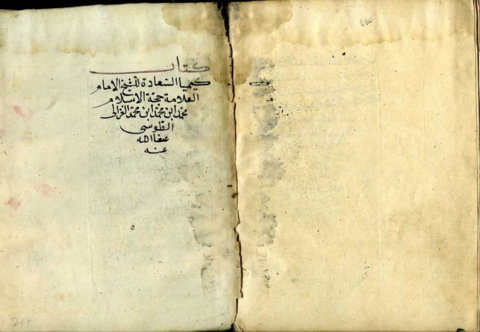 كتاب
كيميا السعادة للشيخ الامام
العلامة حجة الاسلام
محمد ابن محمد ابن محمد الغزالى
الطوسى
عفا الله
عنه